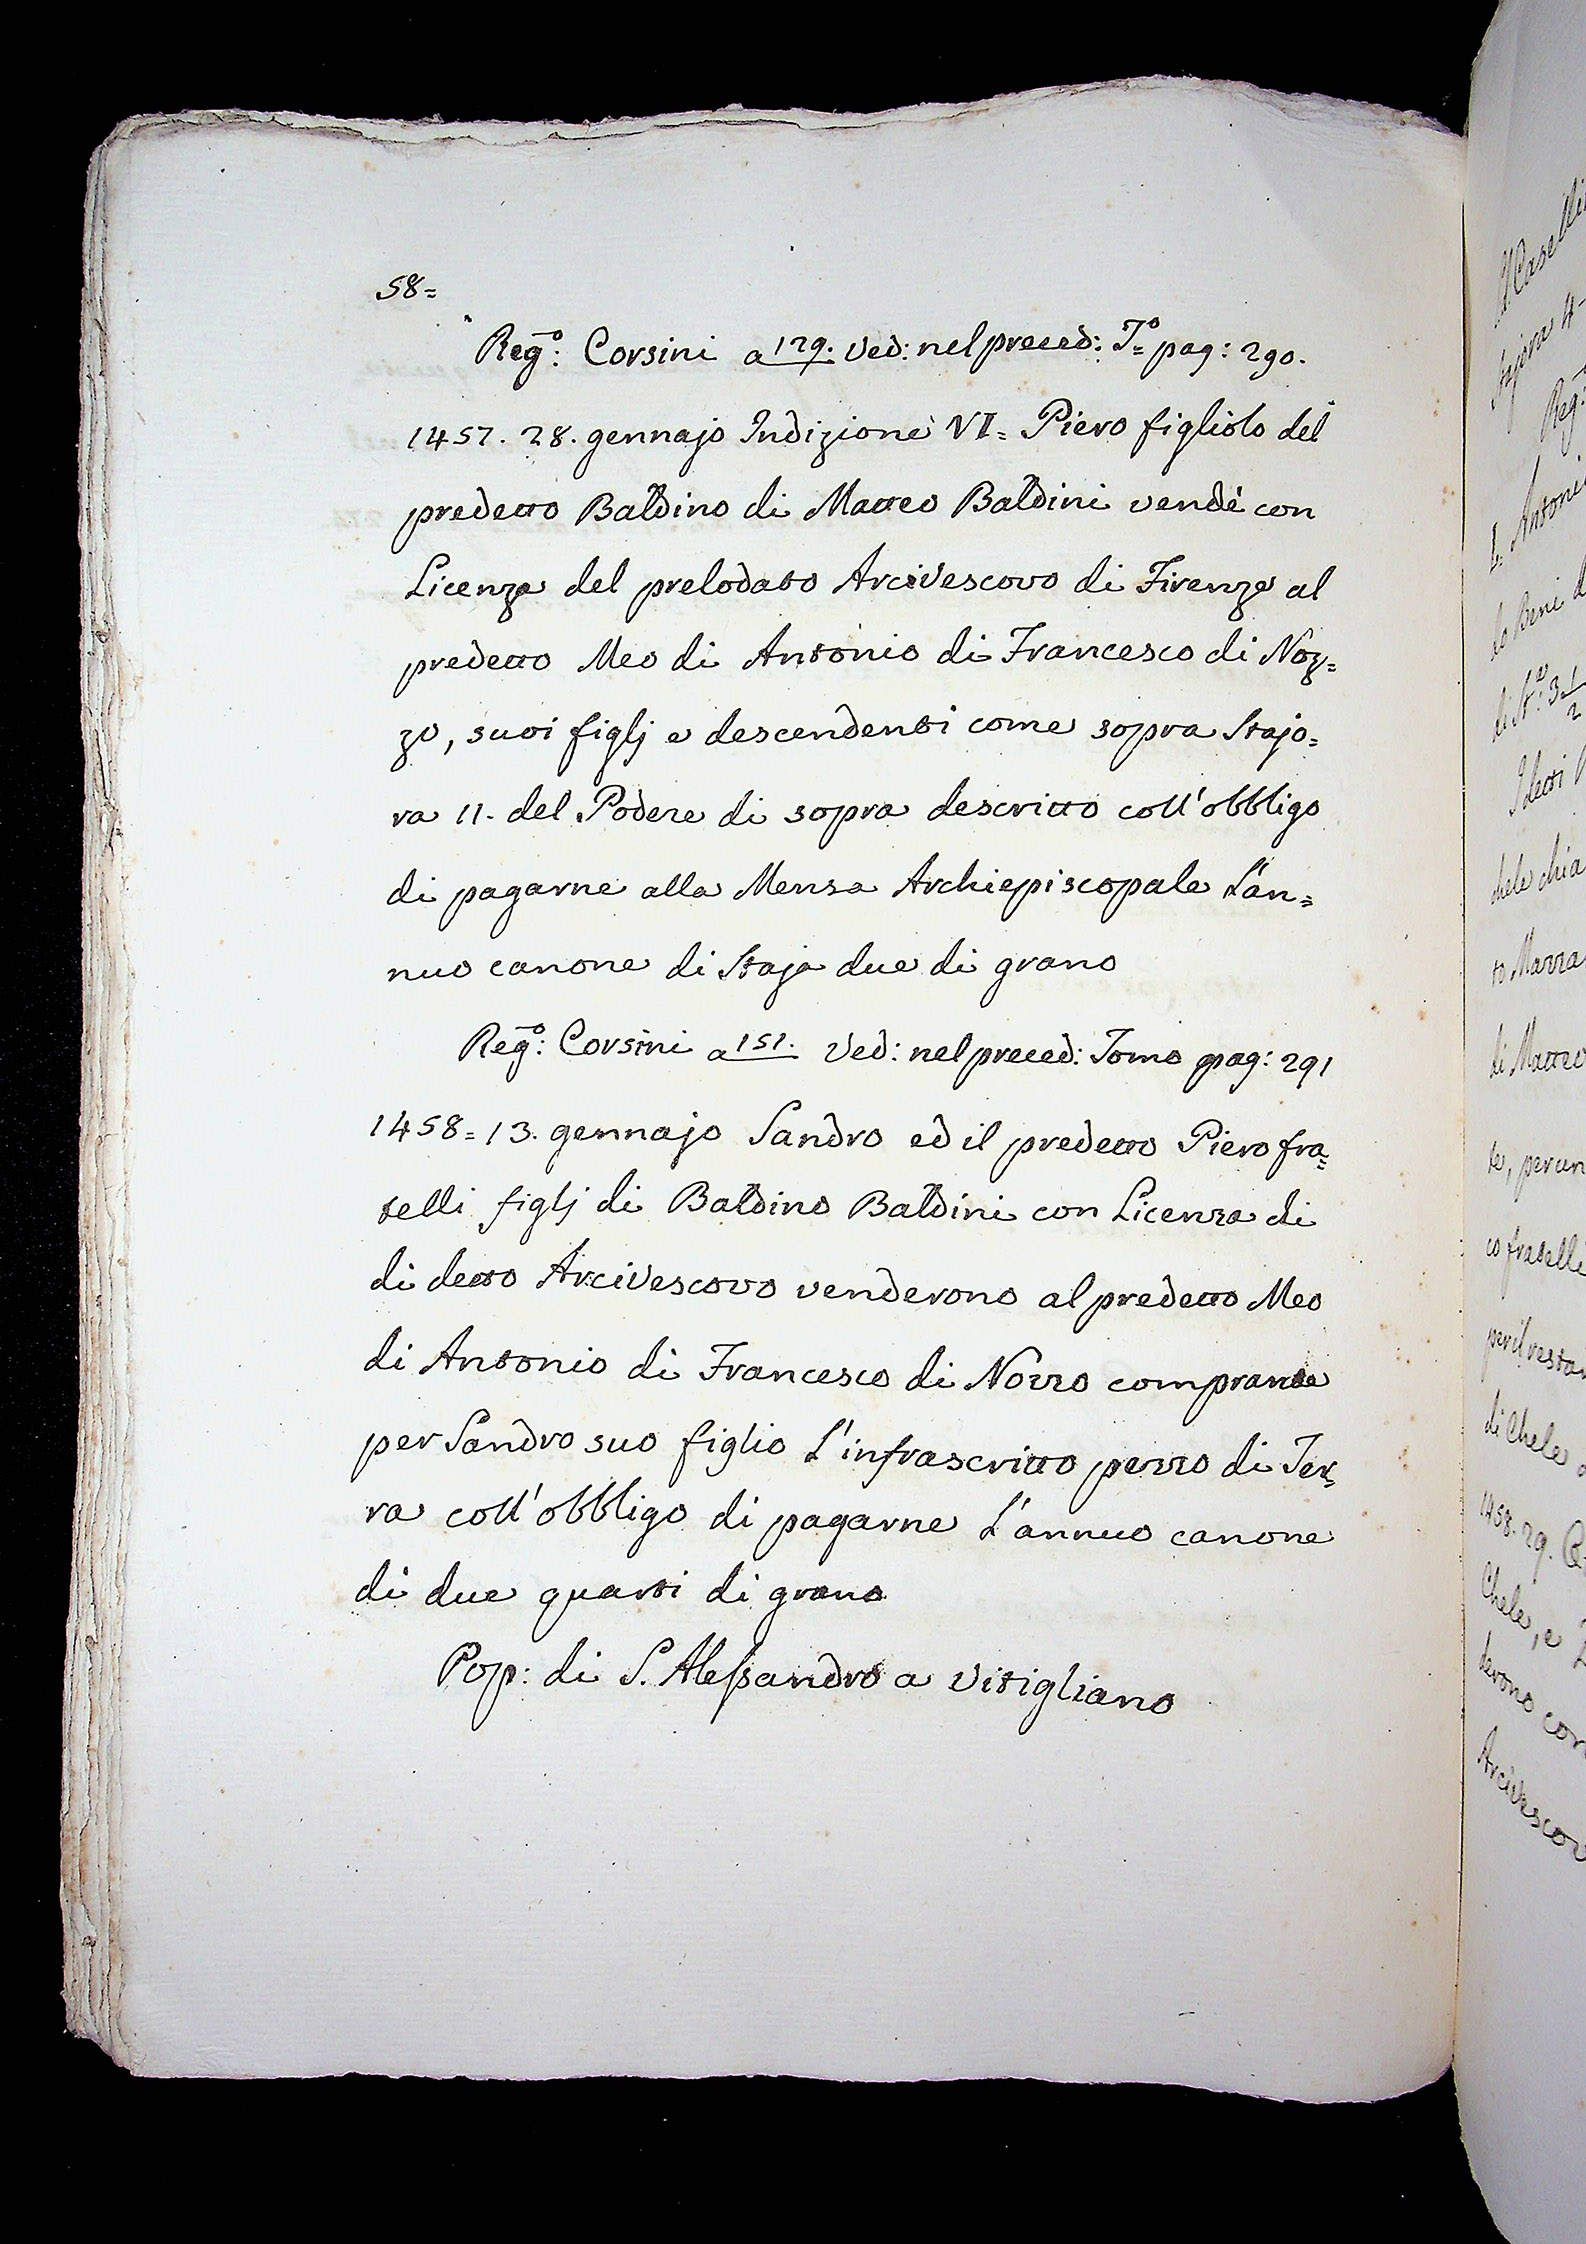 58=
Reg.º: Corsini a 129. Ved: nel preced: Tº= pag: 290.
1457. 28. gennajo Indizione VI= Piero figliolo del
predetto Baldino di Matteo Baldini vendè con
Licenza del prelodato Arcivescovo di Firenze al
predetto Meo di Antonio di Francesco di Noz=
zo, suoi figlj e descendenti come sopra Stajo=
ra 11. del Podere di sopra descritto coll'obbligo
di pagarne alla Mensa Archiepiscopale L'an=
nuo canone di Staja due di grano
Reg.º: Corsini a 151. Ved: nel preced: Tomo pag: 291
1458=13. gennajo Sandro ed il predetto Piero fra=
telli figlj di Baldino Baldini con Licenza di
di detto Arcivescovo venderono al predetto Meo
di Antonio di Francesco di Nozzo comprante
per Sandro suo figlio L'infrascritto pezzo di Ter=
ra coll'obbligo di pagarne L'annuo canone
di due quarti di grano
Pop: di S. Alessandro a Vitigliano
Caselli
stajora 4
Reg.º
Antoni
lo Beni d
di St.ª: 3 1/2
I detti
chele chia
to Mazza
di Matteo
te, per un
co fratelli
per il restan
di Chele
1458. 29.
Chele, e
derono con
Arcivescov